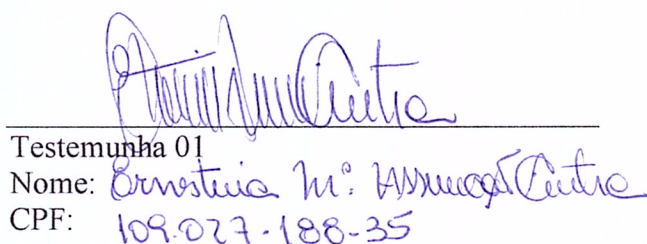 Testemunha 01
Nome: Ernestina Mª Assunção Cintra
CPF: 109.027-188-35